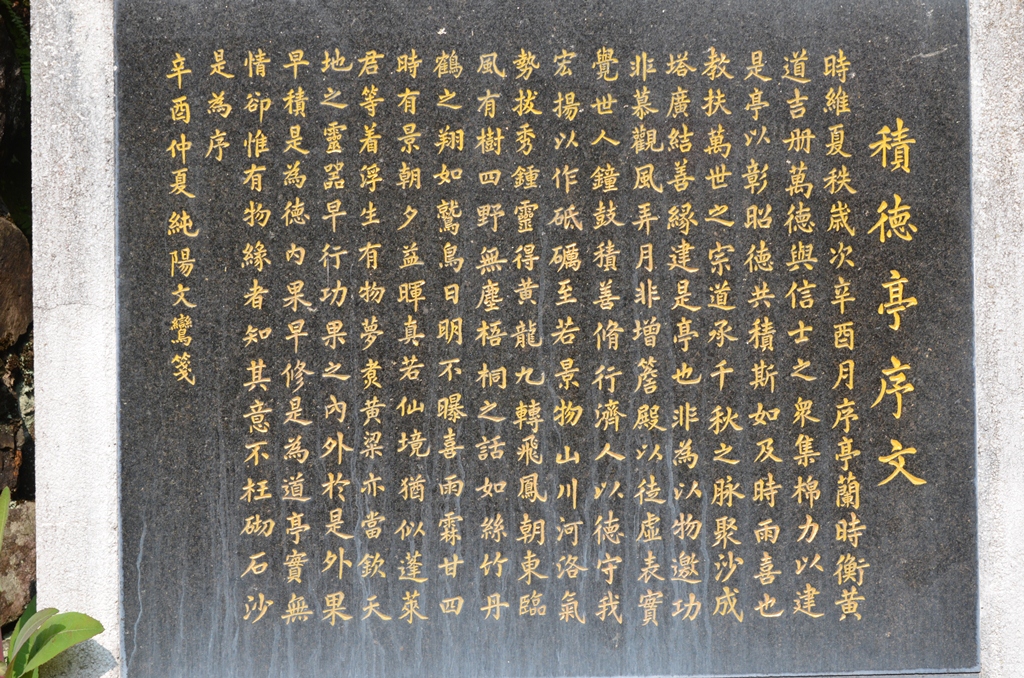 積徳亭序文
時維夏秩歲次辛酉月序亭蘭時衡黄
道吉册萬德與信士之衆集棉力以建
是亭以彰昭徳共積斯如及時雨喜也
教扶萬世之宗道承千秋之脉聚沙成
塔廣結善緣建是亭也非為以物邀功
非慕觀風弄月非增簷殿以徒虛表實
覺世人鐘鼓積善脩行濟人以德守我
宏揚以作砥礪至若景物山川河洛氣
勢拔秀鍾靈得黄龍九轉飛鳳朝東臨
風有樹四野無塵梧桐之話如絲竹丹
鶴之翔如鷲鳥日明不曝喜雨霖甘四
時有景朝夕益暉真若仙境猶似蓬萊
君等着浮生有物夢煑黄梁亦當欽天
地之靈器早行功果之內外於是外果
早積是為徳內果早修是為道亭實無
情卻惟有物緣者知其意不枉砌石沙
是為序
辛酉仲夏純陽文鸞箋